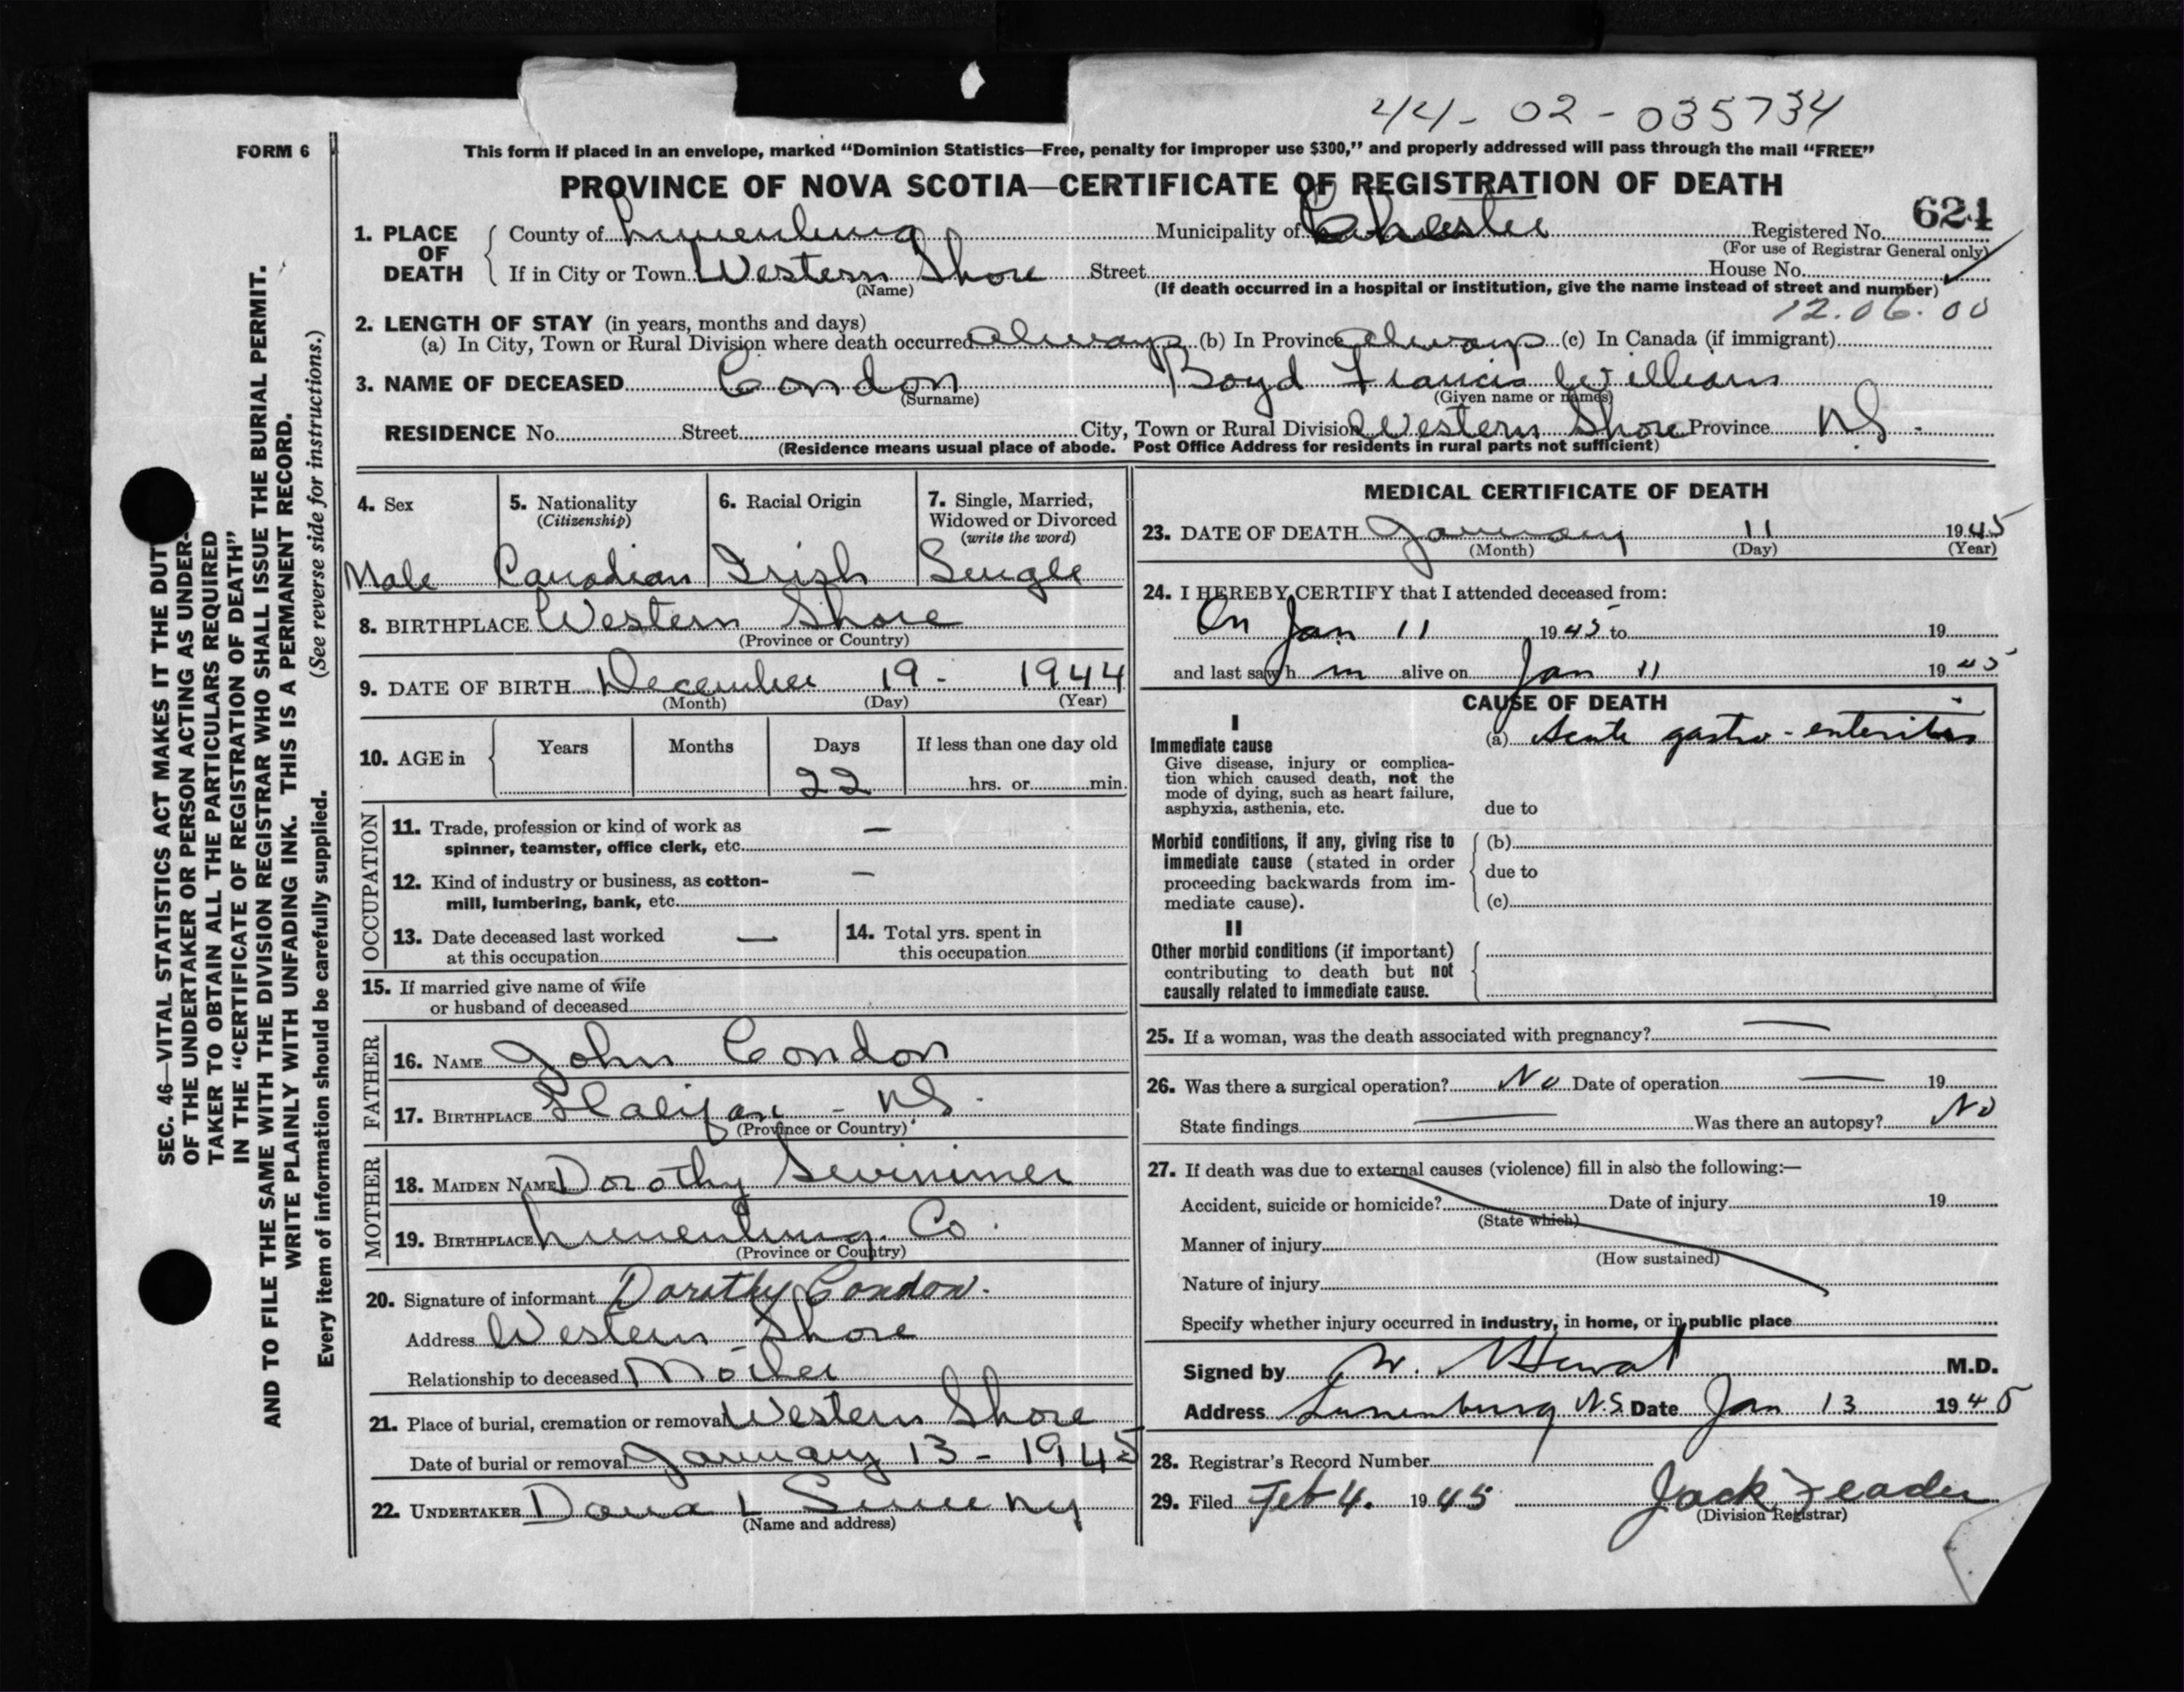 44-02-035734
FORM 6
This form if placed in an envelope, marked “Dominion Statistics—Free, penalty for improper use $300,” and properly addressed will pass through the mail “FREE”
PROVINCE OF NOVA SCOTIA—CERTIFICATE OF REGISTRATION OF DEATH
624
1. PLACE OF DEATH
County of Lunenburg Municipality of Chester Registered No.
(For use of Registrar General only)
If in City or Town Western Shore Street House No.
(Name) (If death occurred in a hospital or institution, give the name instead of street and number)
12.06.00
2. LENGTH OF STAY (in years, months and days)
(a) In City, Town or Rural Division where death occurred always (b) In Province always (c) In Canada (if immigrant)
3. NAME OF DECEASED Condon Boyd Francis William
(Surname) (Given name or names)
RESIDENCE No. Street City, Town or Rural Division Western Shore Province N.S.
(Residence means usual place of abode. Post Office Address for residents in rural parts not sufficient)
4. Sex
Male
5. Nationality
(Citizenship)
Canadian
6. Racial Origin
Irish
7. Single, Married,
Widowed or Divorced
(write the word)
Single
8. BIRTHPLACE Western Shore
(Province or Country)
9. DATE OF BIRTH December 19 - 1944
(Month) (Day) (Year)
10. AGE in Years Months Days If less than one day old
22 hrs. or min.
OCCUPATION
11. Trade, profession or kind of work as —
spinner, teamster, office clerk, etc.
12. Kind of industry or business, as cotton- —
mill, lumbering, bank, etc.
13. Date deceased last worked —
at this occupation
14. Total yrs. spent in
this occupation
15. If married give name of wife
or husband of deceased
FATHER
16. NAME John Condon
17. BIRTHPLACE Halifax - N.S.
(Province or Country)
MOTHER
18. MAIDEN NAME Dorothy Swinimer
19. BIRTHPLACE Lunenburg. Co.
(Province or Country)
20. Signature of informant Dorothy Condon.
Address Western Shore
Relationship to deceased Mother
21. Place of burial, cremation or removal Western Shore
Date of burial or removal January 13 - 1945
22. UNDERTAKER
(Name and address)
MEDICAL CERTIFICATE OF DEATH
23. DATE OF DEATH January 11 1945
(Month) (Day) (Year)
24. I HEREBY CERTIFY that I attended deceased from:
On Jan 11 1945 to 19
and last saw h im alive on Jan 11 1945
CAUSE OF DEATH
I
Immediate cause
Give disease, injury or complica-
tion which caused death, not the
mode of dying, such as heart failure,
asphyxia, asthenia, etc.
(a) Acute gastro-enteritis
due to
Morbid conditions, if any, giving rise to
immediate cause (stated in order
proceeding backwards from im-
mediate cause).
(b)
due to
(c)
II
Other morbid conditions (if important)
contributing to death but not
causally related to immediate cause.
25. If a woman, was the death associated with pregnancy? —
26. Was there a surgical operation? No Date of operation — 19
State findings — Was there an autopsy? No
27. If death was due to external causes (violence) fill in also the following:—
Accident, suicide or homicide? Date of injury 19
(State which)
Manner of injury
(How sustained)
Nature of injury
Specify whether injury occurred in industry, in home, or in public place
Signed by W. M.D.
Address Lunenburg N.S. Date Jan 13 1945
28. Registrar's Record Number
29. Filed Feb 4. 1945 Jack Zeader
(Division Registrar)
SEC. 46—VITAL STATISTICS ACT MAKES IT THE DUT
OF THE UNDERTAKER OR PERSON ACTING AS UNDER-
TAKER TO OBTAIN ALL THE PARTICULARS REQUIRED
IN THE “CERTIFICATE OF REGISTRATION OF DEATH”
AND TO FILE THE SAME WITH THE DIVISION REGISTRAR WHO SHALL ISSUE THE BURIAL PERMIT.
WRITE PLAINLY WITH UNFADING INK. THIS IS A PERMANENT RECORD.
Every item of information should be carefully supplied. (See reverse side for instructions.)